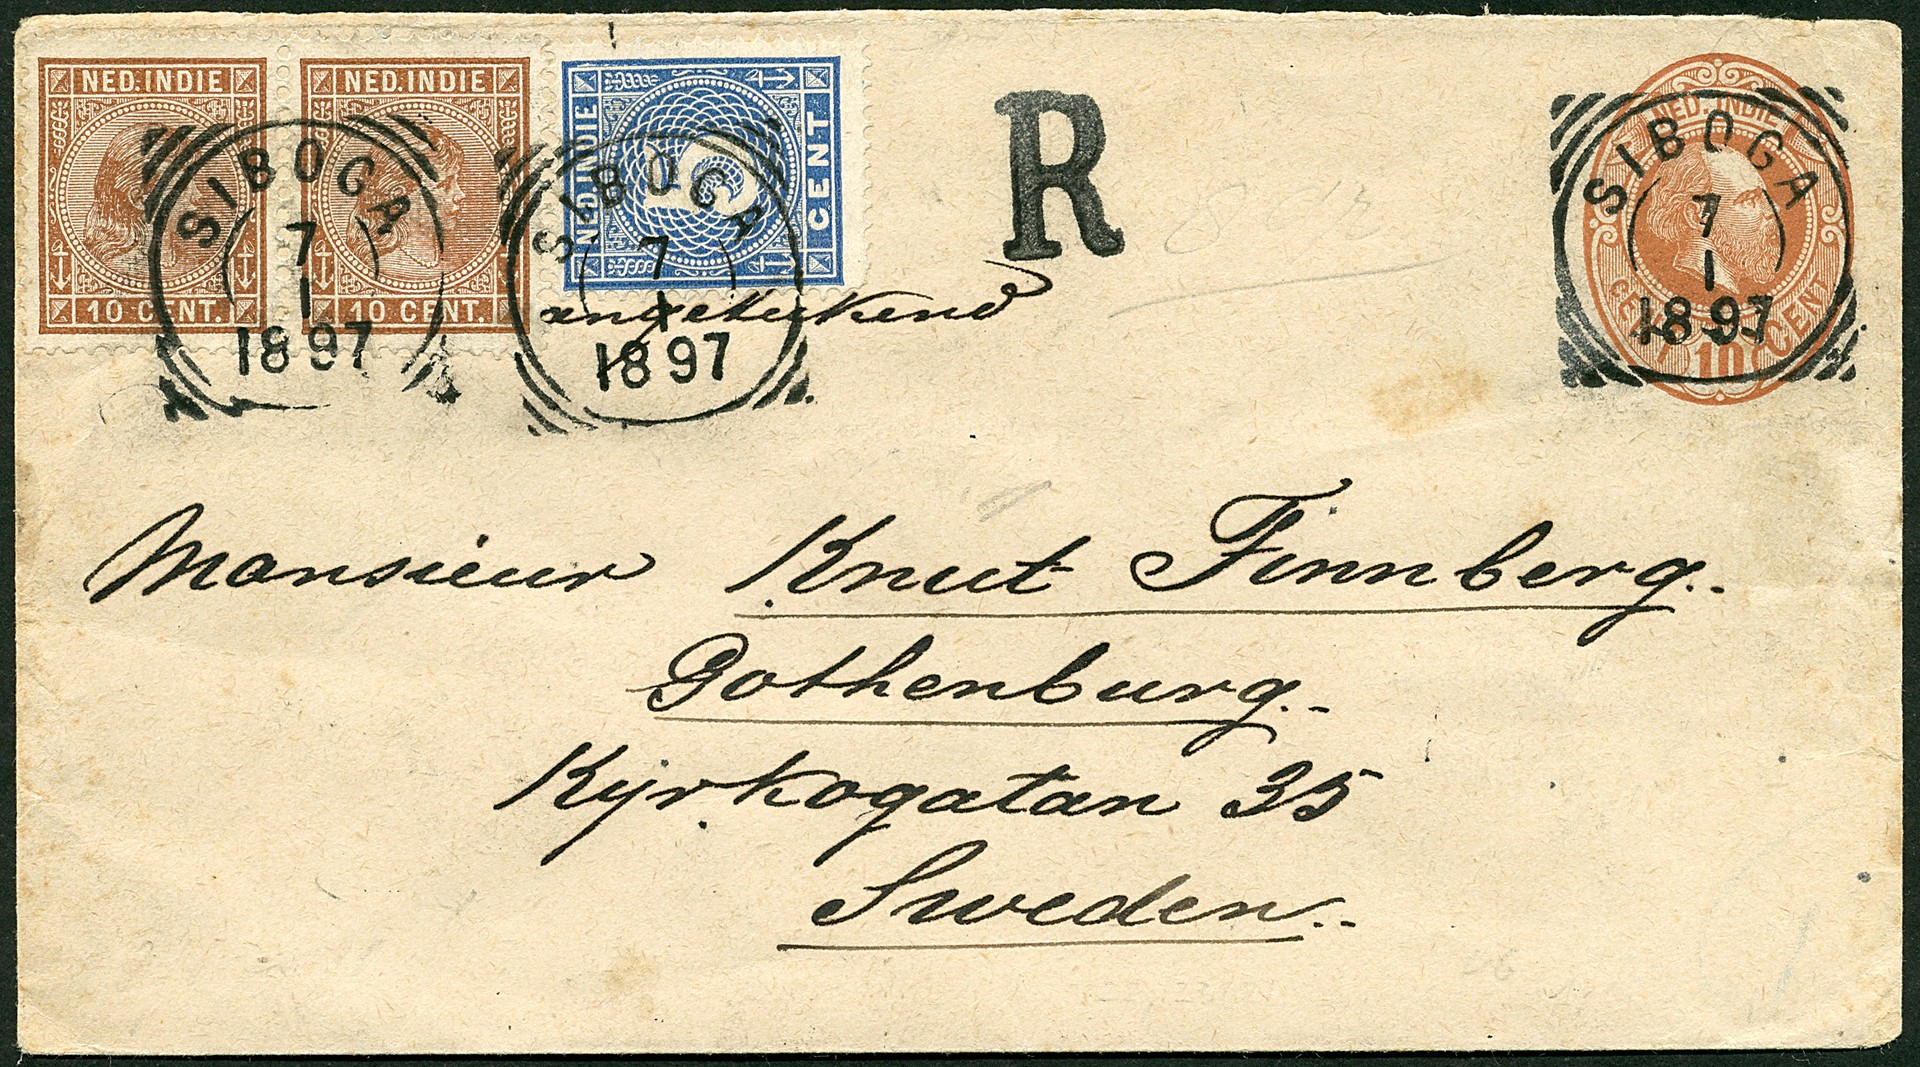 NED. INDIE
10 CENT.
NED. INDIE
10 CENT.
NED. INDIE
5
CENT
R
NED. INDIE
CENT 10 CENT
SIBOGA
7
1
1897
SIBOGA
7
1
1897
SIBOGA
7
1
1897
angetekend
Monsieur Knut Finnberg.
Gothenburg.
Kyrkogatan 35
Sweden.